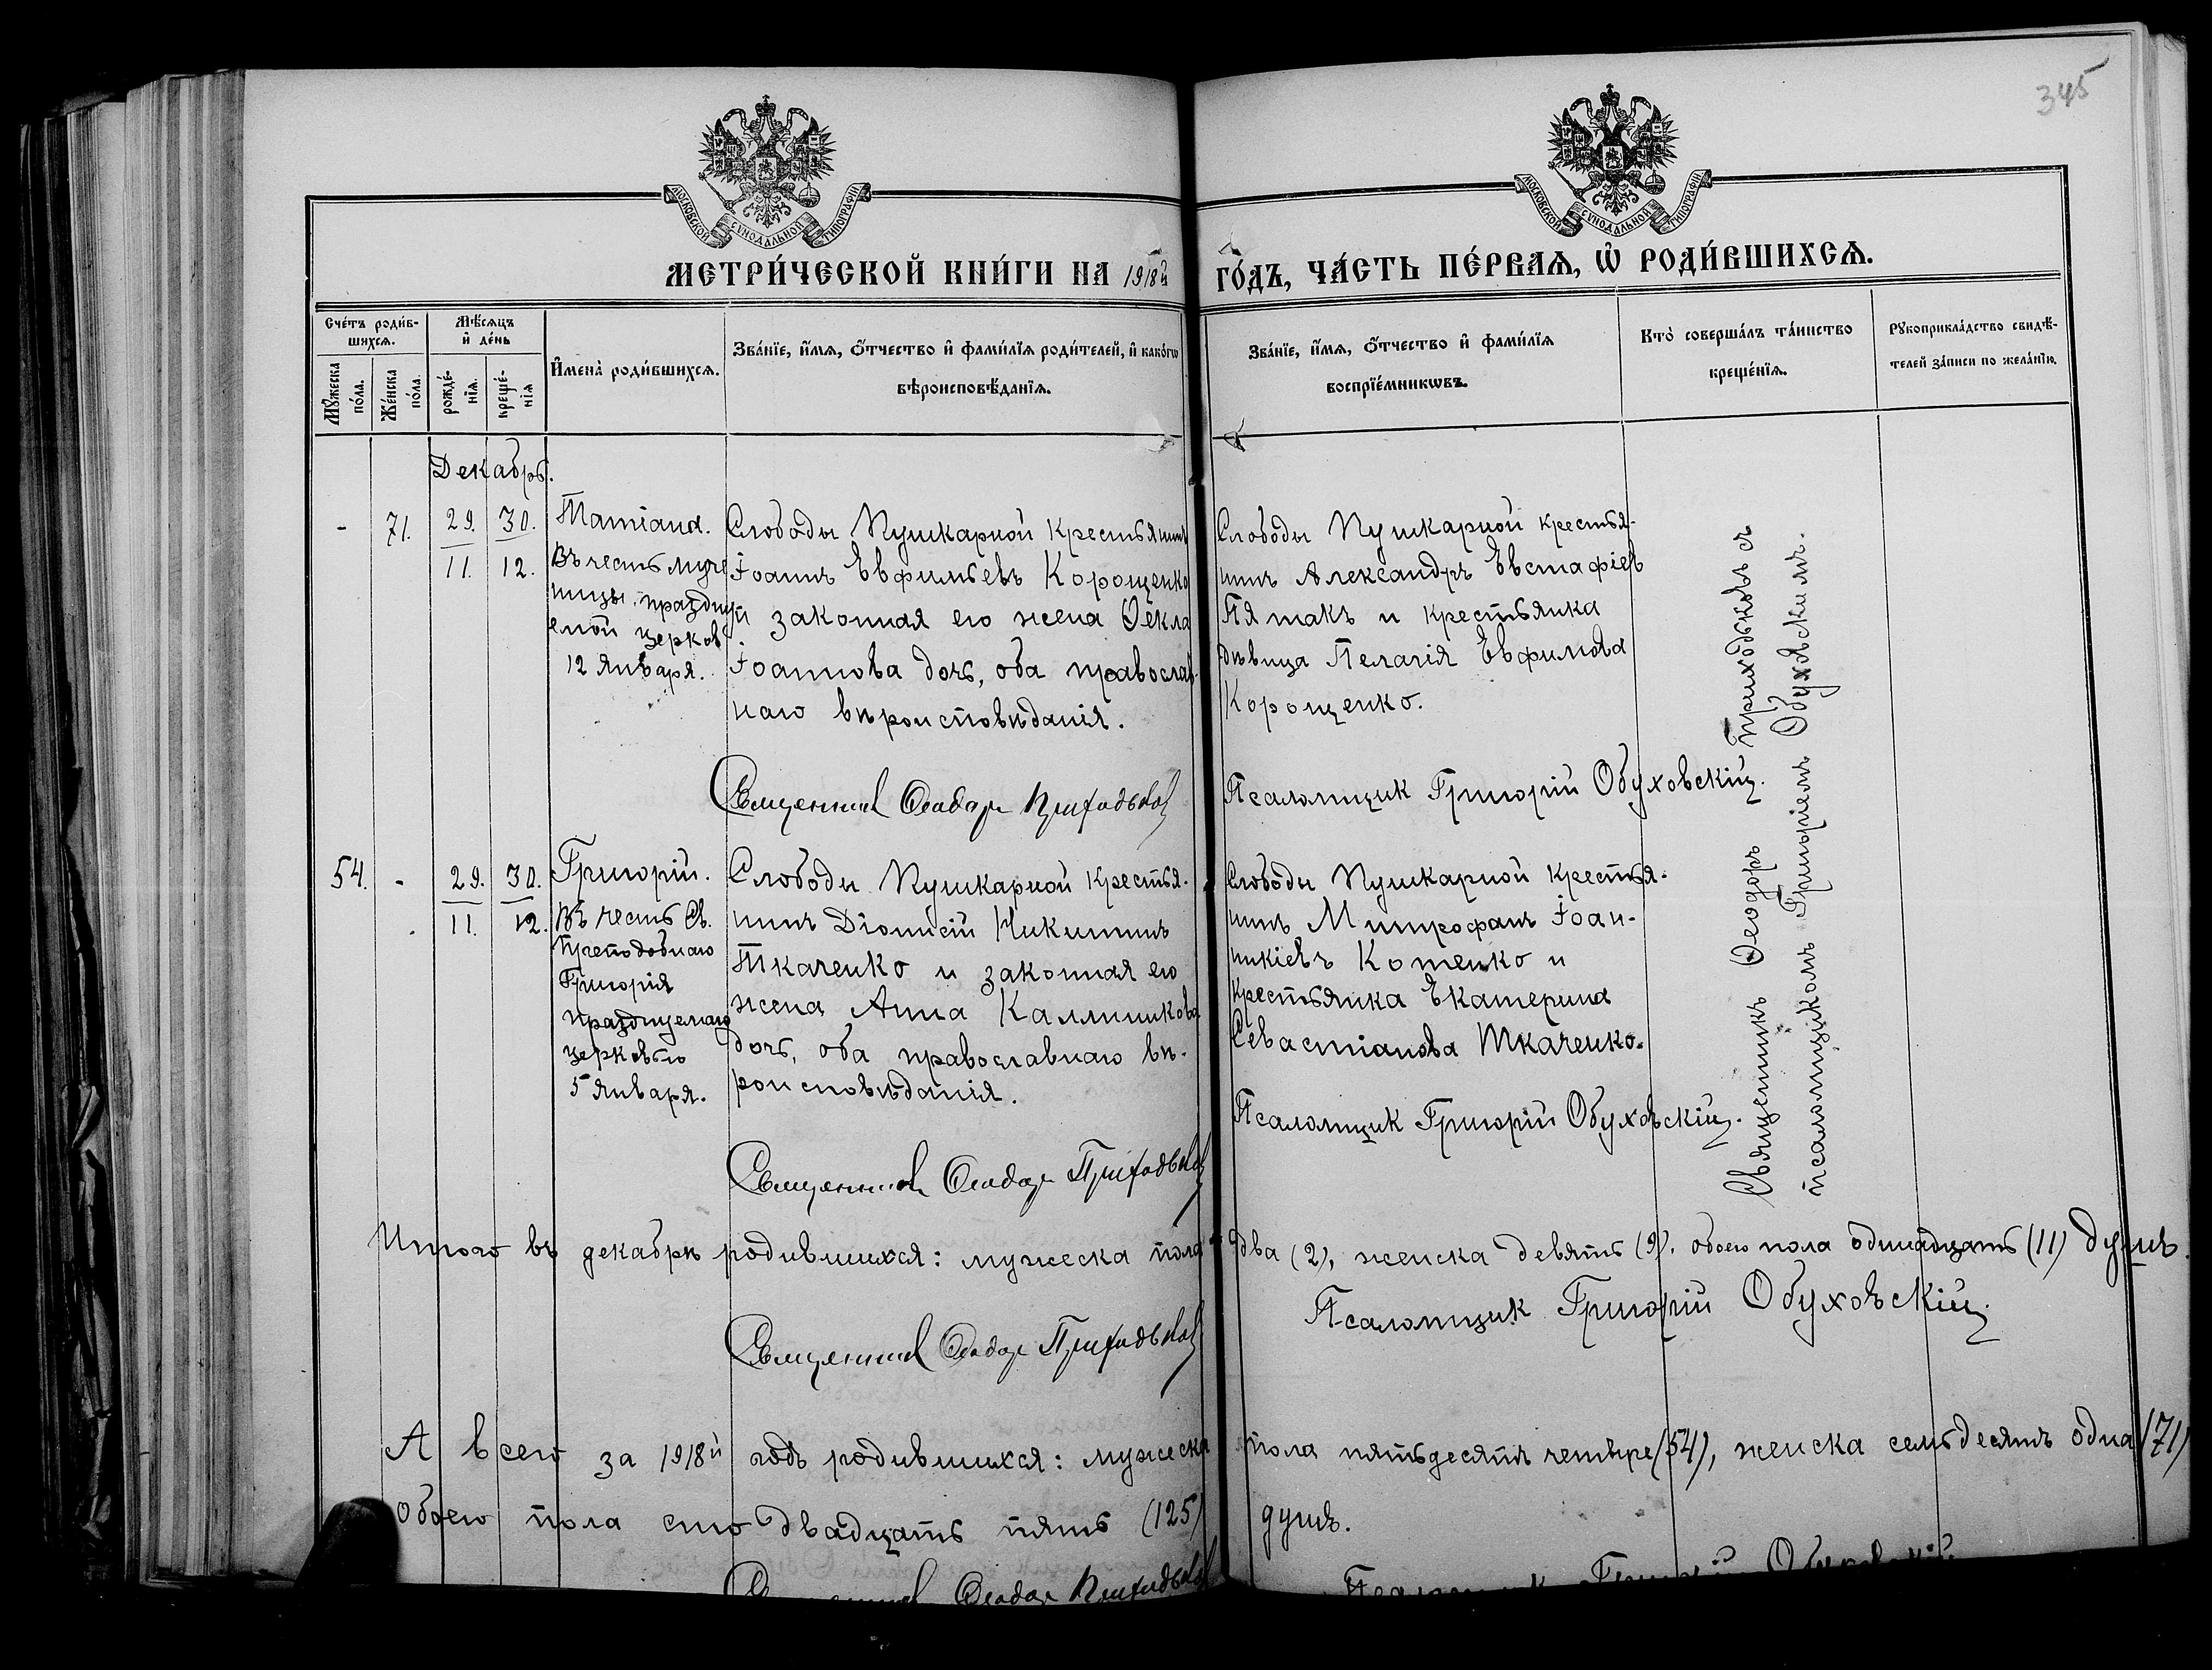 345
МОСКОВСКОЙ СѴНОДАЛЬНОЙ ТИПОГРАФІИ
МОСКОВСКОЙ СѴНОДАЛЬНОЙ ТИПОГРАФІИ
МЕТРИ́ЧЕСКОЙ КНИ́ГИ НА 1918й ГО́ДЪ, ЧА́СТЬ ПЕ́РВАѦ, Ѡ҆ РОДИ́ВШИХСѦ.
Сче́тъ роди́в-
шихсѧ.
Мꙋ́жеска по́ла.
Же́нска по́ла.
Мѣ́сѧцъ и҆ де́нь
рожде́-
нїѧ.
креще́-
нїѧ
И҆мена̀ роди́вшихсѧ.
Зва́нїе, и҆́мѧ, ѻ҆́тчество и҆ фами́лїѧ роди́телей, и҆ како́гѡ
вѣроисповѣ́данїѧ.
Зва́нїе, и҆́мѧ, ѻ҆́тчество и҆ фами́лїѧ
воспрїе́мникѡвъ.
Кто̀ соверша́лъ та́инство
креще́нїѧ.
Рꙋкоприкла́дство свидѣ́-
телей за́писи по жела́нїю.
Декабрь.
- 71. 29. 30.
11. 12.
Татіана.
Въ честь муче
ницы, праздну
емой церков
12 Января.
Слободы Пушкарной крестьянинъ
Іоаннъ Евфимьевъ Корощенко
и законная его жена Ѳекла
Іоаннова дочь, оба православ-
наго вѣроисповѣданія.
Священник Ѳеодор Приходьков
Слободы Пушкарной крестья-
нинъ Александръ Евстафіев
Пятакъ и крестьянка
дѣвица Пелагія Евфимова
Корощенко.
Псаломщик Григорій Обуховскій.
54. - 29. 30.
11. 12.
Григорій.
Въ честь Св.
Преподобнаго
Григорія
празднуемаго
церковью
5 Января.
Слободы Пушкарной крестья-
нинъ Діонисій Никитинъ
Ткаченко и законная его
жена Анна Каллиникова
дочь, оба православнаго вѣ-
роисповѣданія.
Священник Ѳеодор Приходьков
Слободы Пушкарной крестья-
нинъ Митрофанъ Іоан-
никіевъ Котенко и
крестьянка Екатерина
Севастіанова Ткаченко.
Псаломщик Григорій Обуховскій.
Священникъ Ѳеодоръ Приходьковъ съ
псаломщикомъ Григоріемъ Обуховскимъ.
Итого въ декабрѣ родившихся: мужеска пола два (2), женска девять (9), обоего пола одинадцать (11) душъ.
Священник Ѳеодор Приходьков
Псаломщик Григорій Обуховскій.
А всего за 1918й годъ родившихся: мужеска пола пятьдесятъ четыре (54), женска семьдесятъ одна (71)
обоего пола сто двадцать пять (125) душъ.
Священник Ѳеодор Приходьков
Псаломщик Григорій Обуховскій